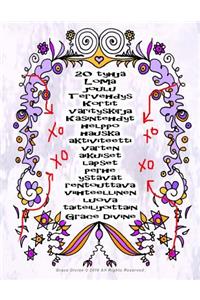 20 tyhjä
Loma
joulu
Tervehdys
Kortit
värityskirja
Käsintehdyt
helppo
hauska
aktiviteetti
varten
aikuiset
lapset
perhe
ystävät
rentouttava
viihteellinen
luova
taiteilijoittain
Grace Divine
XO
XO
XO
XO
Grace Divine © 2016 All Rights Reserved